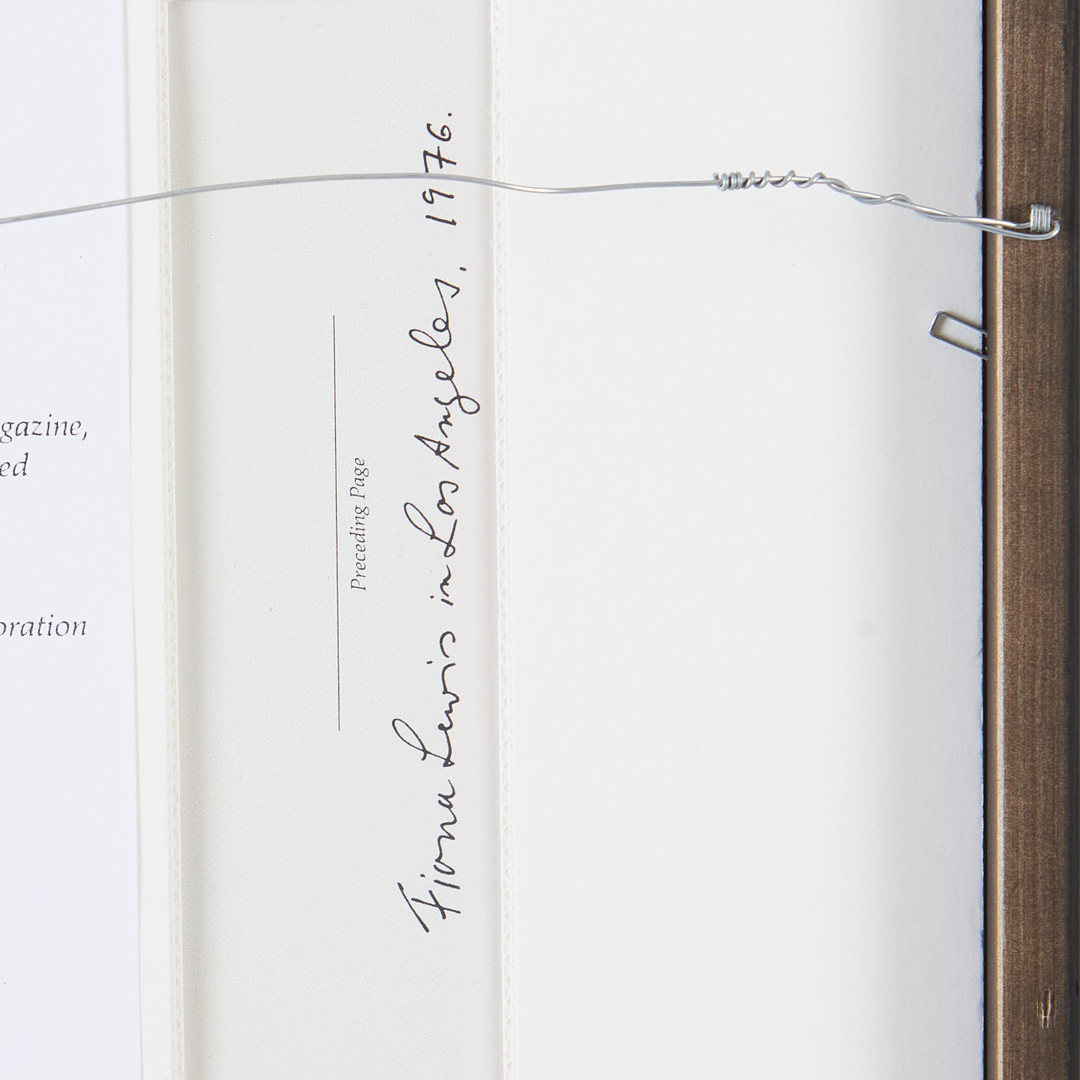 gazine,
ed
oration
Preceding Page
Fiona Lewis in Los Angeles, 1976.